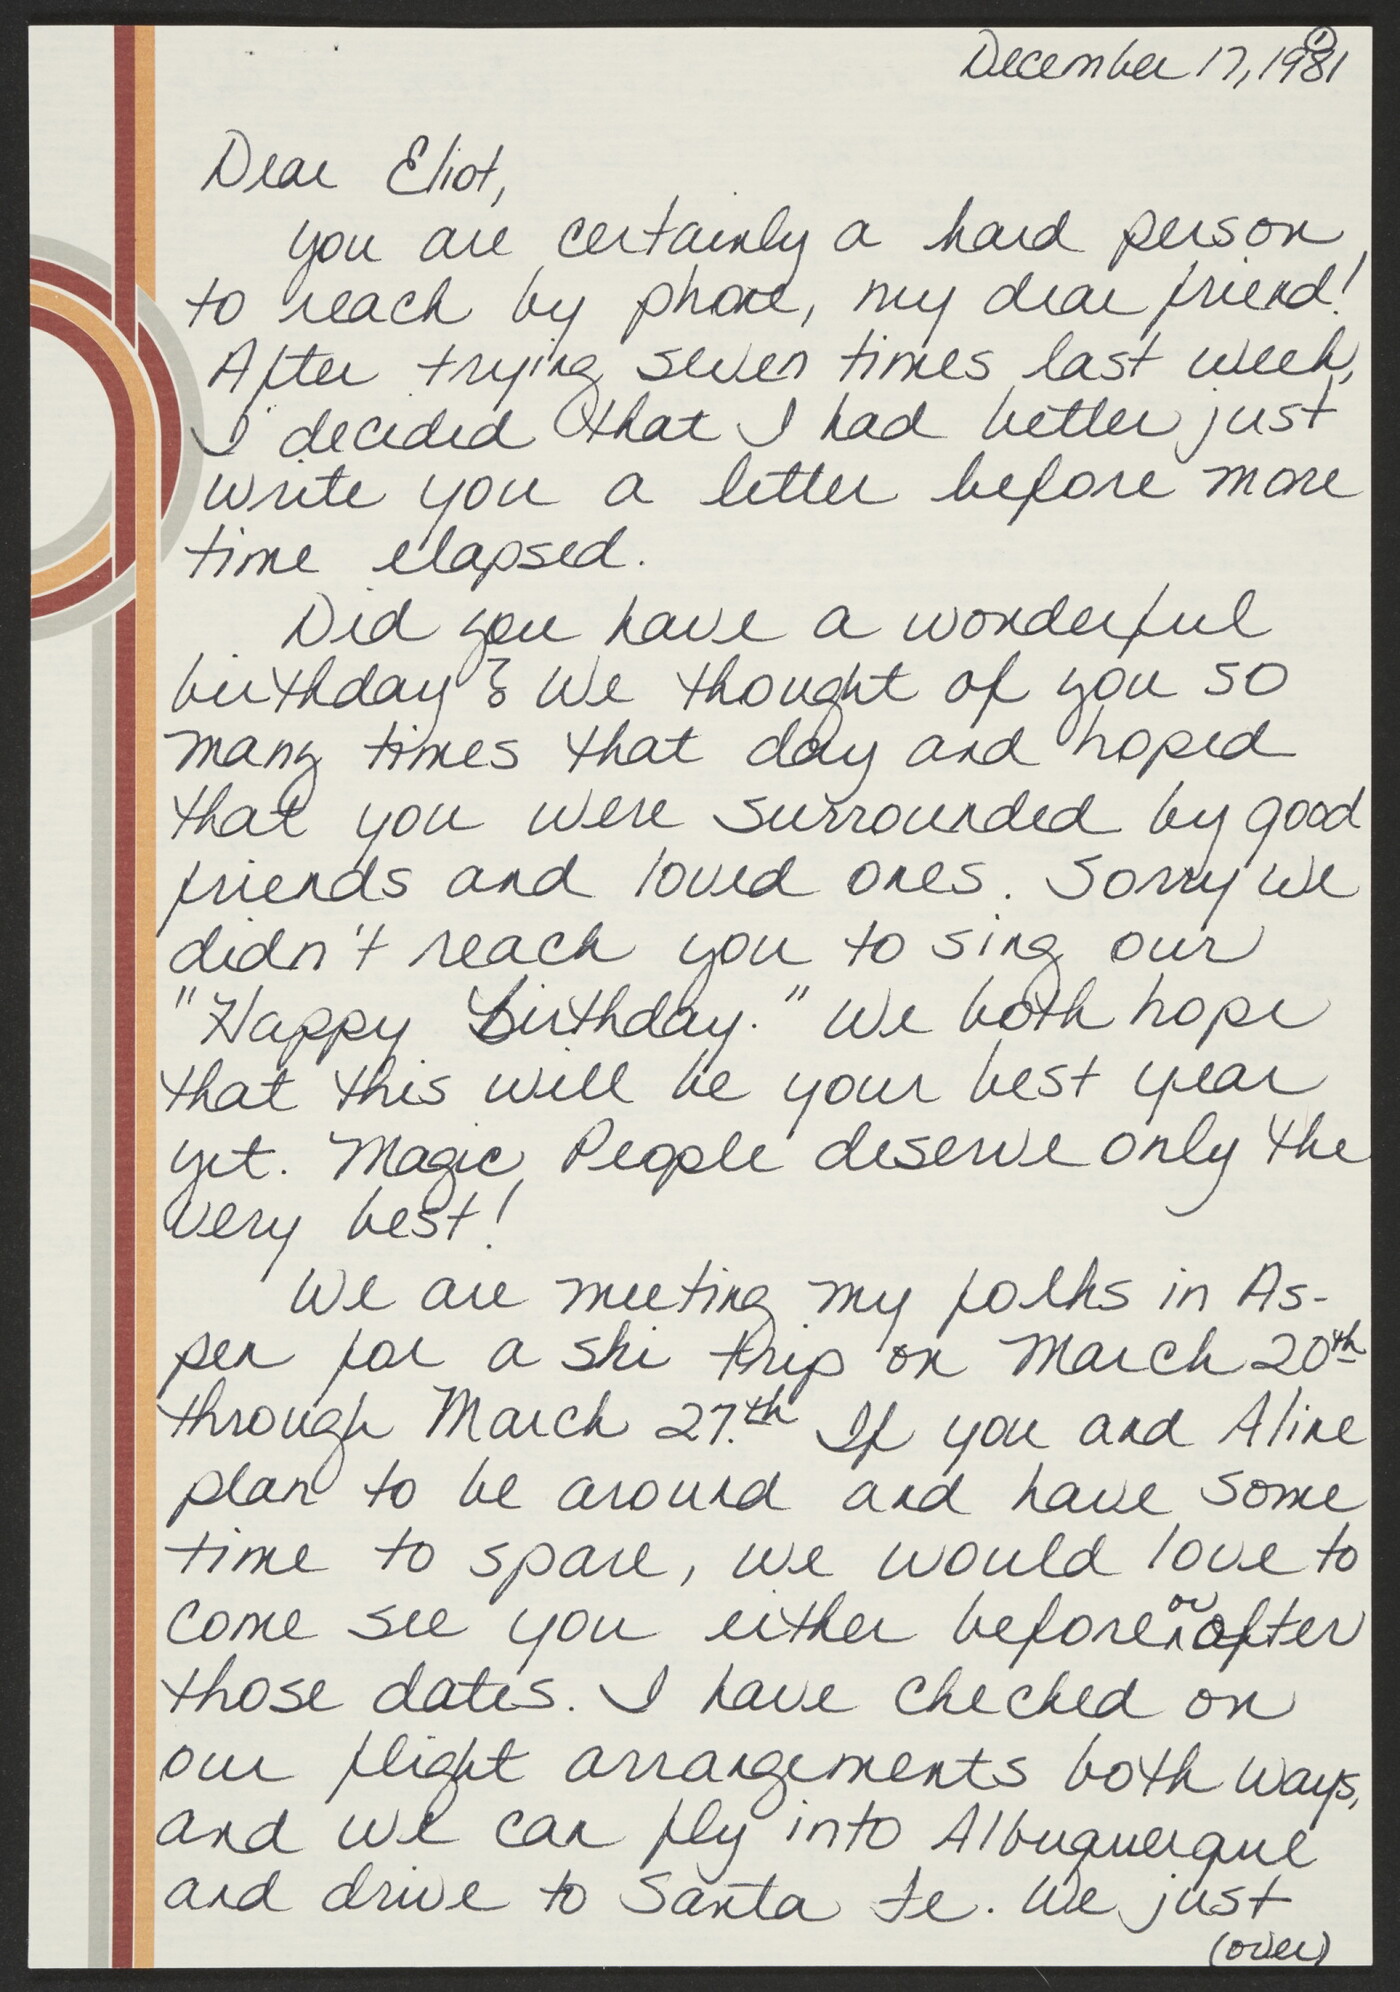 ①
December 17, 1981
Dear Eliot,
you are certainly a hard person
to reach by phone, my dear friend!
After trying seven times last week,
I decided that I had better just
write you a letter before more
time elapsed.
Did you have a wonderful
birthday? We thought of you so
many times that day and hoped
that you were surrounded by good
friends and loved ones. Sorry we
didn't reach you to sing our
"Happy Birthday." We both hope
that this will be your best year
yet. Magic People deserve only the
very best!
We are meeting my folks in As-
pen for a ski trip on March 20th
through March 27.th If you and Aline
plan to be around and have some
time to spare, we would love to
come see you either before or after
those dates. I have checked on
our flight arrangements both ways,
and we can fly into Albuquerque
and drive to Santa Fe. We just
(over)